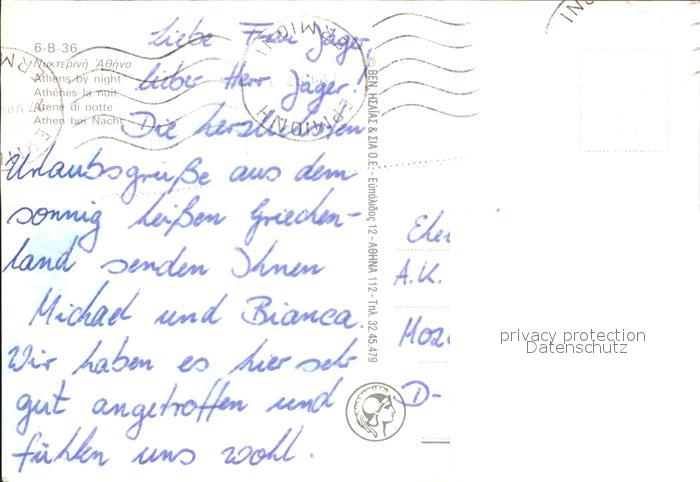 6-8-36
Νυκτερινή Ἀθήνα
Athens by night
Athénes la nuit
Atene di notte
Athen bei Nacht
Liebe Frau Jäger,
lieber Herr Jäger!
Die herzlichsten
Urlaubsgrüße aus dem
sonnig heißen Griechen-
land senden Ihnen
Michael und Bianca.
Wir haben es hier sehr
gut angetroffen und
fühlen uns wohl.
© ΒΕΝ. ΗΣΑΪΑΣ & ΣΙΑ Ο.Ε. - Εὐπόλιδος 12 - ΑΘΗΝΑ 112 - Τηλ. 32.45.479
ΕΡΜΙΟΝΗ
ERMIONI
A.K.
D-
privacy protection
Datenschutz